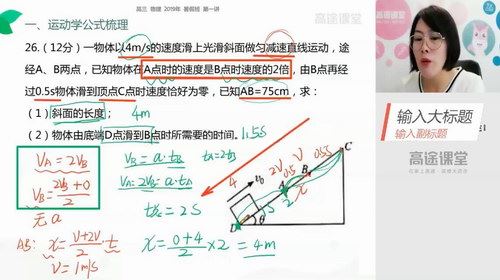 高三 物理 2019年 暑假班 第一讲
高途课堂
一、运动学公式梳理
26.(12分)一物体以4m/s的速度滑上光滑斜面做匀减速直线运动，途
经A、B两点，已知物体在A点时的速度是B点时速度的2倍，由B点再经
过0.5s物体滑到顶点C点时速度恰好为零，已知AB=75cm，求：
（1）斜面的长度； 4m
（2）物体由底端D点滑到B点时所需要的时间。1.5s
V_A=2V_B
V_B=(2V_B+0)/2
无a
V_B=a·t_B
t_A=2t_B
V_A=2V_B=a·t_A
t=2S
AB: x=(V+2V)/2·t
V=1m/s
x=(0+4)/2×2=4m
4
v₀
2V
0.5
V
0.5S
C
B
A
x
2
D
θ
输入大标题
输入副标题
高途课堂
在家上高途·成绩大进步